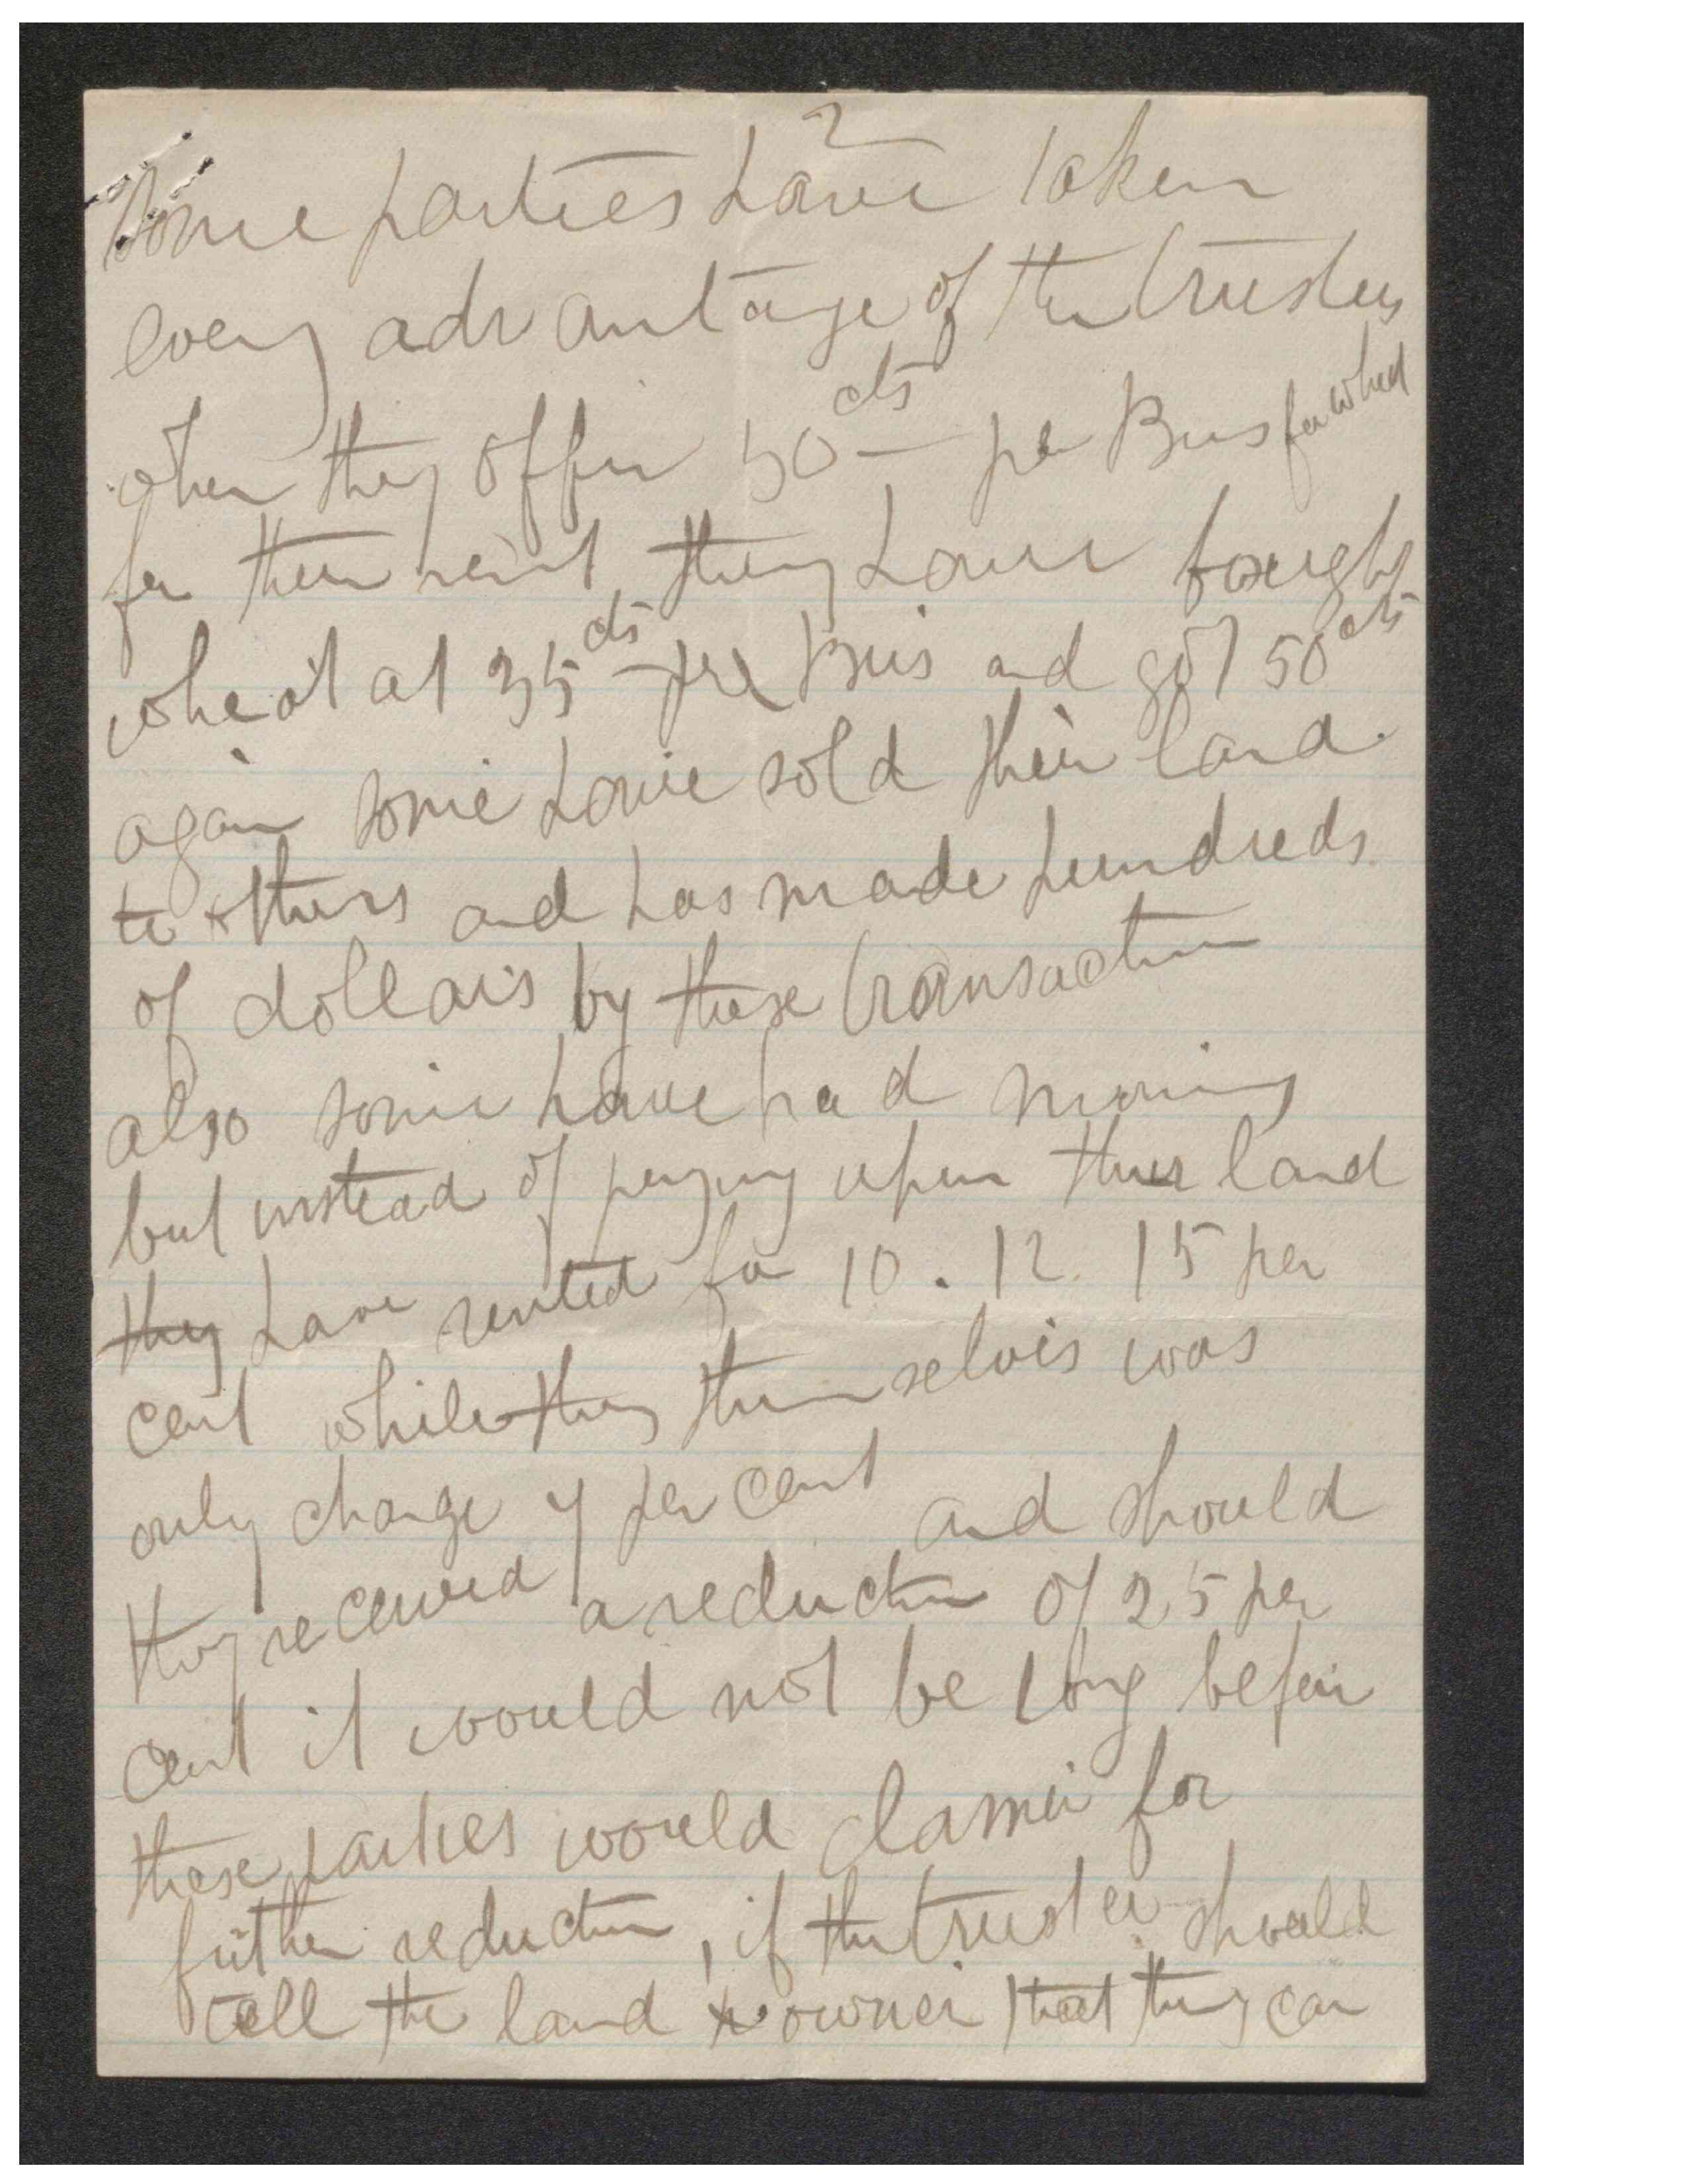 2
Some parties have taken
every advantage of the trustees
when they offer 50 cts per Bus for wheat
for their rent they have bought
wheat at 35 cts per Bus and got 50 cts
again some have sold their land
to others and has made hundreds
of dollars by these transaction
also some have had
but instead of paying upon their land
they have rented for 10. 12. 15 per
cent while they themselves was
only charge 7 per cent and should
they received a reduction of 25 per
cent it would not be long before
these parties would clamer for
further reduction, if the trustees should
tell the land owner that they can